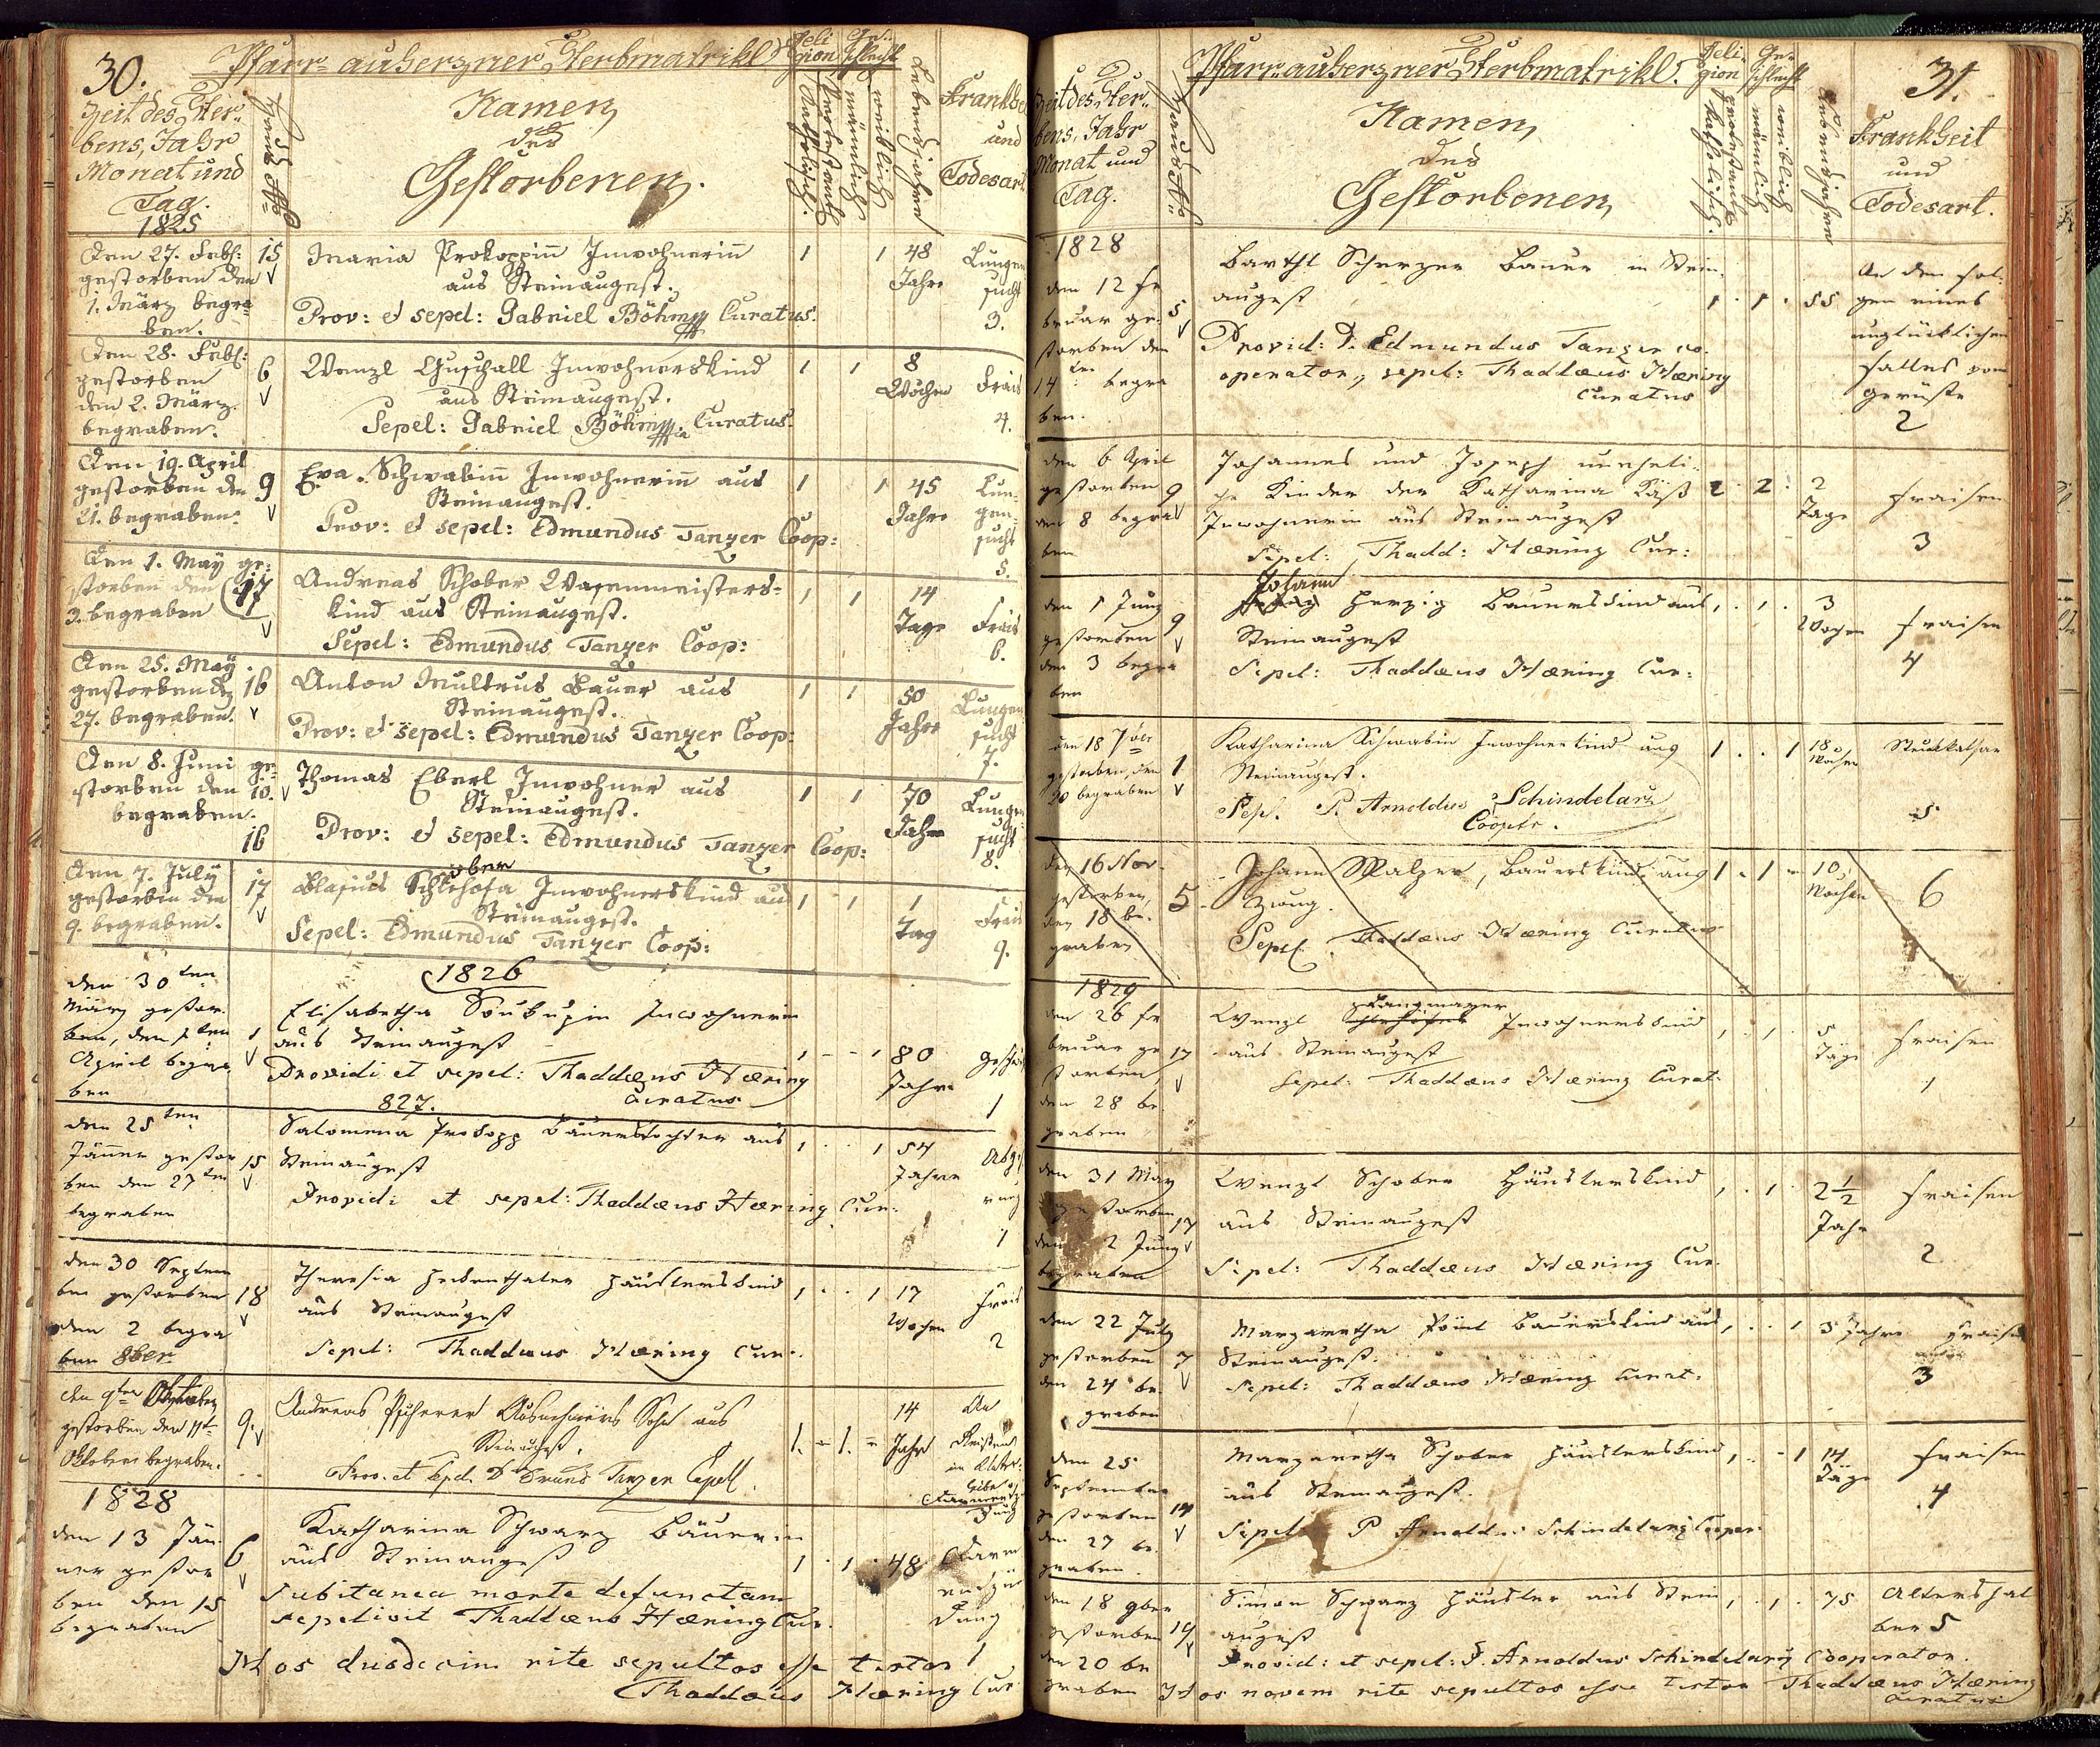 30.
Pfarr- auherzner Sterbmatrikl
Reli
gion
Ge-
schlecht
Zeit des Ster-
bens, Jahr
Monat und
Tag.
1825
Haus No
Namen
des
Gestorbenen.
Katholisch.
Protestant
männlich
weiblich
Lebensjahre
Krankhe
und
Todesart
Den 27. Feb:
gestorben den
1. März begra
ben.
15
Maria Prokoppinn Inwohnerinn
aus Steinaugest.
Prov: et sepel: Gabriel Böhm Curatus.
1 1
48
Jahre
Lungen
sucht
3.
Den 28. Feb:
gestorben
den 2. März.
begraben.
6
Wenzl Guschall Inwohnerskind
aus Steinaugest.
Sepel: Gabriel Böhm Curatus.
1 1
8
Wochen
Frais
4.
Den 19. April
gestorben den
21. begraben.
9
Eva Schwabinn Inwohnerinn aus
Steinaugest.
Prov: et sepel: Edmundus Tanzer Coop:
1 1
45
Jahre
Lun-
gen-
sucht
5.
Den 1. May ge-
storben den
3. begraben
17
Andreas Schober Wasenmeisters-
kind aus Steinaugest.
Sepel: Edmundus Tanzer Coop:
1 1
14
Tage
Frais
6.
Den 25. May
gestorben den
27. begraben.
16
Anton Multrus Bauer aus
Steinaugest.
Prov: et sepel: Edmundus Tanzer Coop:
1 1
50
Jahre
Lungen
sucht
7.
Den 8. Juni ge-
storben den 10.
begraben.
16
Thomas Eberl Inwohner aus
Steinaugest.
Prov: et sepel: Edmundus Tanzer Coop:
1 1
70
Jahre
Lungen
sucht
8.
Den 7. July
gestorben den
9. begraben.
17
ober
Blasius Inwohnerskind aus
Steinaugest.
Sepel: Edmundus Tanzer Coop:
1 1
1
Tag
Frais
9.
1826
den 30ten
März gestor
ben, den 1ten
April begra
ben
1
Elisabetha Inwohnerin
aus Steinaugest
Providi et sepel: Thaddæus Hæring
Curatus
1 - - 1
80
Jahre
1
827.
den 25ten
Jänner gestor
ben den 27ten
begraben
15
Salomena Prokopp Bauerstochter aus
Steinaugest
Providi et sepel: Thaddæus Hæring Cur.
1 1
54
Jahre
1
den 30 Septem
ber gestorben
den 2 begra
ben 8ber
18
Theresia Hekenthaler Häuslerskind
aus Steinaugest
Sepel: Thaddæus Hæring Cur.
1 . . 1
17
Wochen
Frais
2
den 9ten
gestorben den 11t
Oktober begraben.
9.
Andreas Ausnehmers Sohn aus
Steinaugest.
Prov. et Sepel. Tanzer Capell.
1. - 1. -
14
Jahr
An
1828
den 13 Jän
ner gestor
ben den 15
begraben
6
Katharina Schwarz Bäuerin
aus Steinaugest
Subitanea morte defunctam
sepelivit Thaddæus Hæring Cur.
1 . 1 .
48
Darm
entzün
dung
1
Hos duodecim rite sepultos esse testor
Thaddæus Hæring Cur
Pfarr- auherzner Sterbmatrikl.
Reli-
gion
Ge-
schlecht
31.
Zeit des Ster-
bens, Jahr
Monat und
Tag.
Haus No
Namen
des
Gestorbenen
katholisch.
protestant
männlich
weiblich
Lebensjahre
Krankheit
und
Todesart.
1828
den 12 Fe
bruar ge-
storben den
14ten begra
ben.
5
Barthl Scherzer Bauer in Stein-
augest
Provid: P. Edmundus Tanzer co-
operator, sepel: Thaddæus Hæring
Curatus
1 . 1 .
55
An den fol-
gen eines
unglücklichen
Falles vom
Gerüste
2
den 6 April
gestorben
den 8 begra
ben
9
Johannes und Joseph uneheli-
che Kinder der Katharina Käß
Inwohnerin aus Steinaugest
Sepel: Thadd: Hæring Cur:
2 . 2 .
2
Tage
Fraisen
3
den 1 Juny
gestorben
den 3 begra
ben
9
Johann
Herzig Bauerskind aus
Steinaugest
Sepel: Thaddæus Hæring Cur:
1 . 1 .
3
Wochen
Fraisen
4
den 18 7ber
gestorben, den
20 begraben
1
Katharina Schwabin Inwohnerkind aus
Steinaugest.
Sepl. P. Arnoldus Schindelarz
Cooptr.
1 . . 1
18
Wochen
Stickkathar
5
den 16 Nov.
gestorben,
den 18 be-
graben
5
Johann Malzer, Bauerskind, aus
Zwug.
Sepel. Thaddæus Hæring Curatus
1 - 1 -
10
Wochen
6
1829
den 26 Fe
bruar ge
storben,
den 28 be-
graben
17
Langmayer
Wenzl Inwohnerskind
aus Steinaugest
Sepel: Thaddæus Hæring Curat.
1 . 1 .
5
Täge
Fraisen
1
den 31 May
gestorben
den 2 Juny
begraben
17
Wenzl Schober Häuslerskind
aus Steinaugest
Sepel: Thaddæus Hæring Cur.
1 . 1 .
2 1/2
Jahr
Fraisen
2
den 22 July
gestorben
den 24 be-
graben
7
Margaretha Bauerskind aus
Steinaugest.
Sepel: Thaddæus Hæring Curat.
1 . . 1
3 Jahre
Fraisen
3
den 25
September
gestorben
den 27 be-
graben.
14
Margaretha Schober Häuslerskind
aus Steinaugest.
Sepel P Arnoldus Schindelarz Cooper.
1 . - 1
14
Täge
Fraisen
4
den 18 9ber
gestorben
den 20 be
graben
19
Simon Schwarz Häusler aus Stein
augest
Provid: et sepel: P. Arnoldus Schindelarz Cooperator.
1 . 1 .
75
Altershal
ber 5
Hos novem rite sepultos esse testor Thaddæus Hæring
Curatus